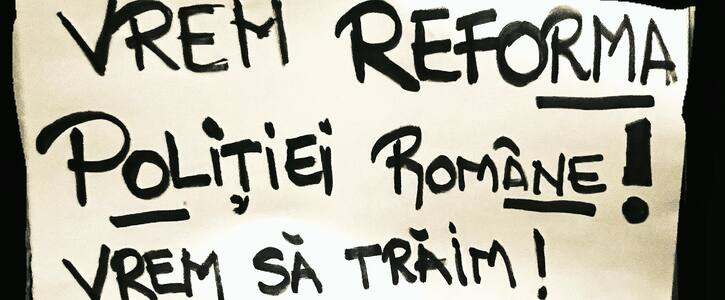 VREM REFORMA
POLIȚIEI ROMÂNE!
VREM SĂ TRĂIM!